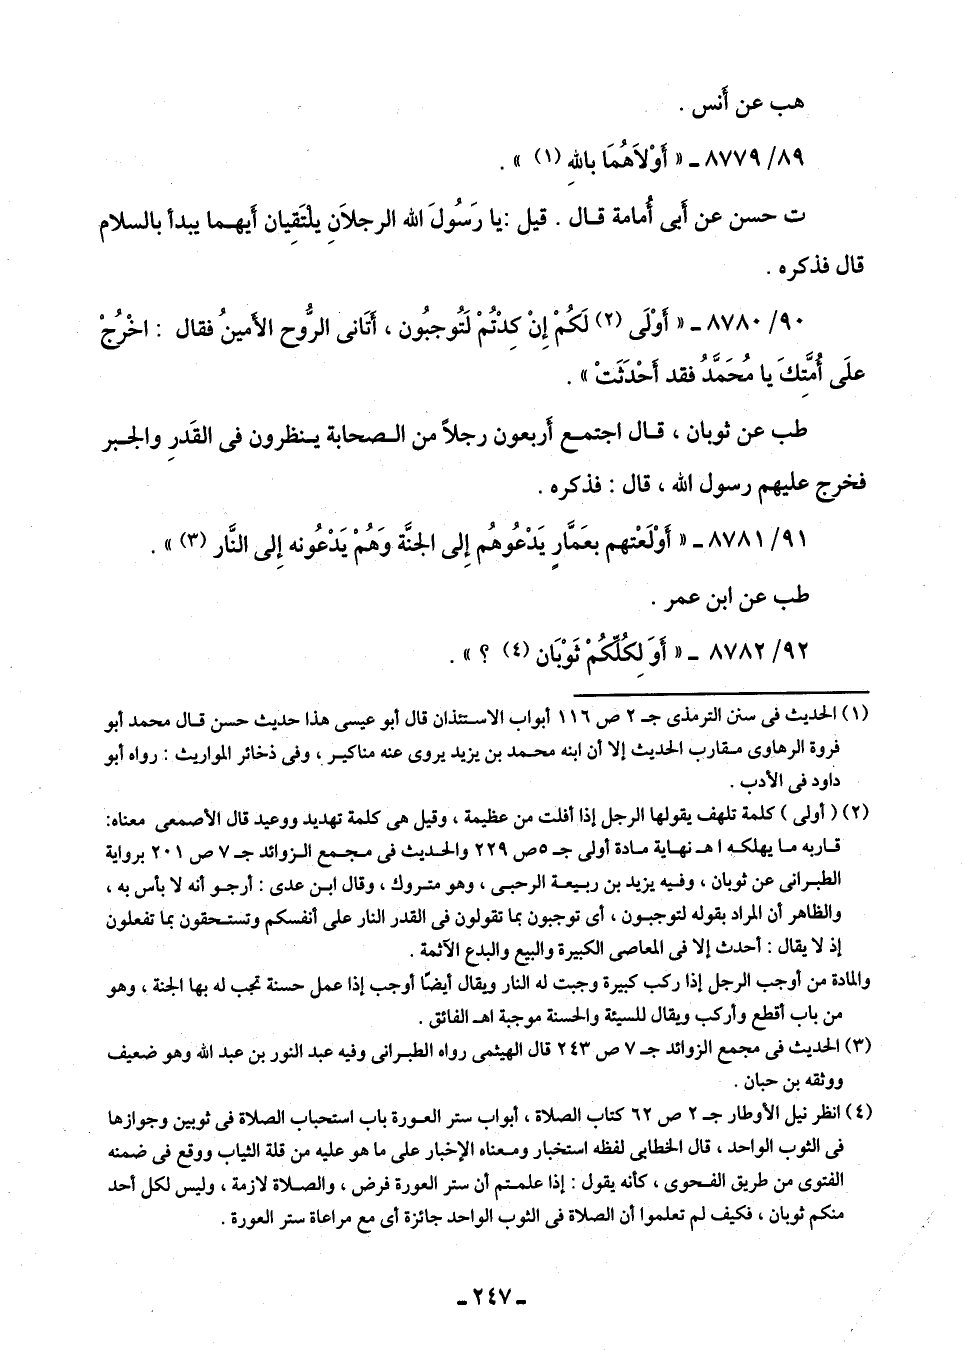 هب عن أَنس .
٨٧٧٩/٨٩ ـ « أَوْلاَهُمَا بِاللهِ (١) » .
ت حسن عن أَبى أُمامة قال . قيل :يا رَسُولَ الله الرجلاَنِ يلْتَقِيان أَيهما يبدأ بالسلام
قال فذكره .
٨٧٨٠/٩٠ ـ « أَوْلَى (٢) لَكُمْ إِنْ كِدْتُمْ لَتُوجِبُون ، أَتَانى الرُّوح الأَمينُ فقال : اخْرُجْ
علَى أُمَّتِكَ يا مُحَمَّدُ فقد أَحْدَثَتْ » .
طب عن ثوبان ، قال اجتمع أَربعون رجلاً من الصحابة ينظرون فى القَدَرِ والجبر
فخرج عليهم رسول الله ، قال : فذكره .
٨٧٨١/٩١ ـ « أَوْلَعْتهم بعَمَّارٍ يَدْعُوهُم إِلى الجنَّة وَهُمْ يَدْعُونه إِلى النَّار (٣) » .
طب عن ابن عمر .
٨٧٨٢/٩٢ ـ « أَوَ لِكُلِّكُمْ ثَوْبَان (٤) ؟ » .
(١) الحديث فى سنن الترمذى جـ ٢ ص ١١٦ أبواب الاستئذان قال أبو عيسى هذا حديث حسن قال محمد أبو
فروة الرهاوى مقارب الحديث إلا أن ابنه محمد بن يزيد يروى عنه مناكير ، وفى ذخائر المواريث : رواه أبو
داود فى الأدب .
(٢) ( أولى ) كلمة تلهف يقولها الرجل إذا أفلت من عظيمة ، وقيل هى كلمة تهديد ووعيد قال الأصمعى معناه:
قاربه ما يهلكه ا هـ نهاية مادة أولى جـ ٥ ص ٢٢٩ والحديث فى مجمع الزوائد جـ ٧ ص ٢٠١ برواية
الطبرانى عن ثوبان ، وفيه يزيد بن ربيعة الرحبى ، وهو متروك ، وقال ابن عدى : أرجو أنه لا بأس به ،
والظاهر أن المراد بقوله لتوجبون ، أى توجبون بما تقولون فى القدر النار على أنفسكم وتستحقون بما تفعلون
إذ لا يقال : أحدث إلا فى المعاصى الكبيرة والبيع والبدع الآثمة .
والمادة من أوجب الرجل إذا ركب كبيرة وجبت له النار ويقال أيضًا أوجب إذا عمل حسنة تجب له بها الجنة ، وهو
من باب أقطع وأركب ويقال للسيئة والحسنة موجبة اهـ الفائق .
(٣) الحديث فى مجمع الزوائد جـ ٧ ص ٢٤٣ قال الهيثمى رواه الطبرانى وفيه عبد النور بن عبد الله وهو ضعيف
ووثقه بن حبان .
(٤) انظر نيل الأوطار جـ ٢ ص ٦٢ كتاب الصلاة ، أبواب ستر العورة باب استحباب الصلاة فى ثوبين وجوازها
فى الثوب الواحد ، قال الخطابى لفظه استخبار ومعناه الإخبار على ما هو عليه من قلة الثياب ووقع فى ضمنه
الفتوى من طريق الفحوى ، كأنه يقول : إذا علمتم أن ستر العورة فرض ، والصلاة لازمة ، وليس لكل أحد
منكم ثوبان ، فكيف لم تعلموا أن الصلاة فى الثوب الواحد جائزة أى مع مراعاة ستر العورة .
ـ ٢٤٧ ـ